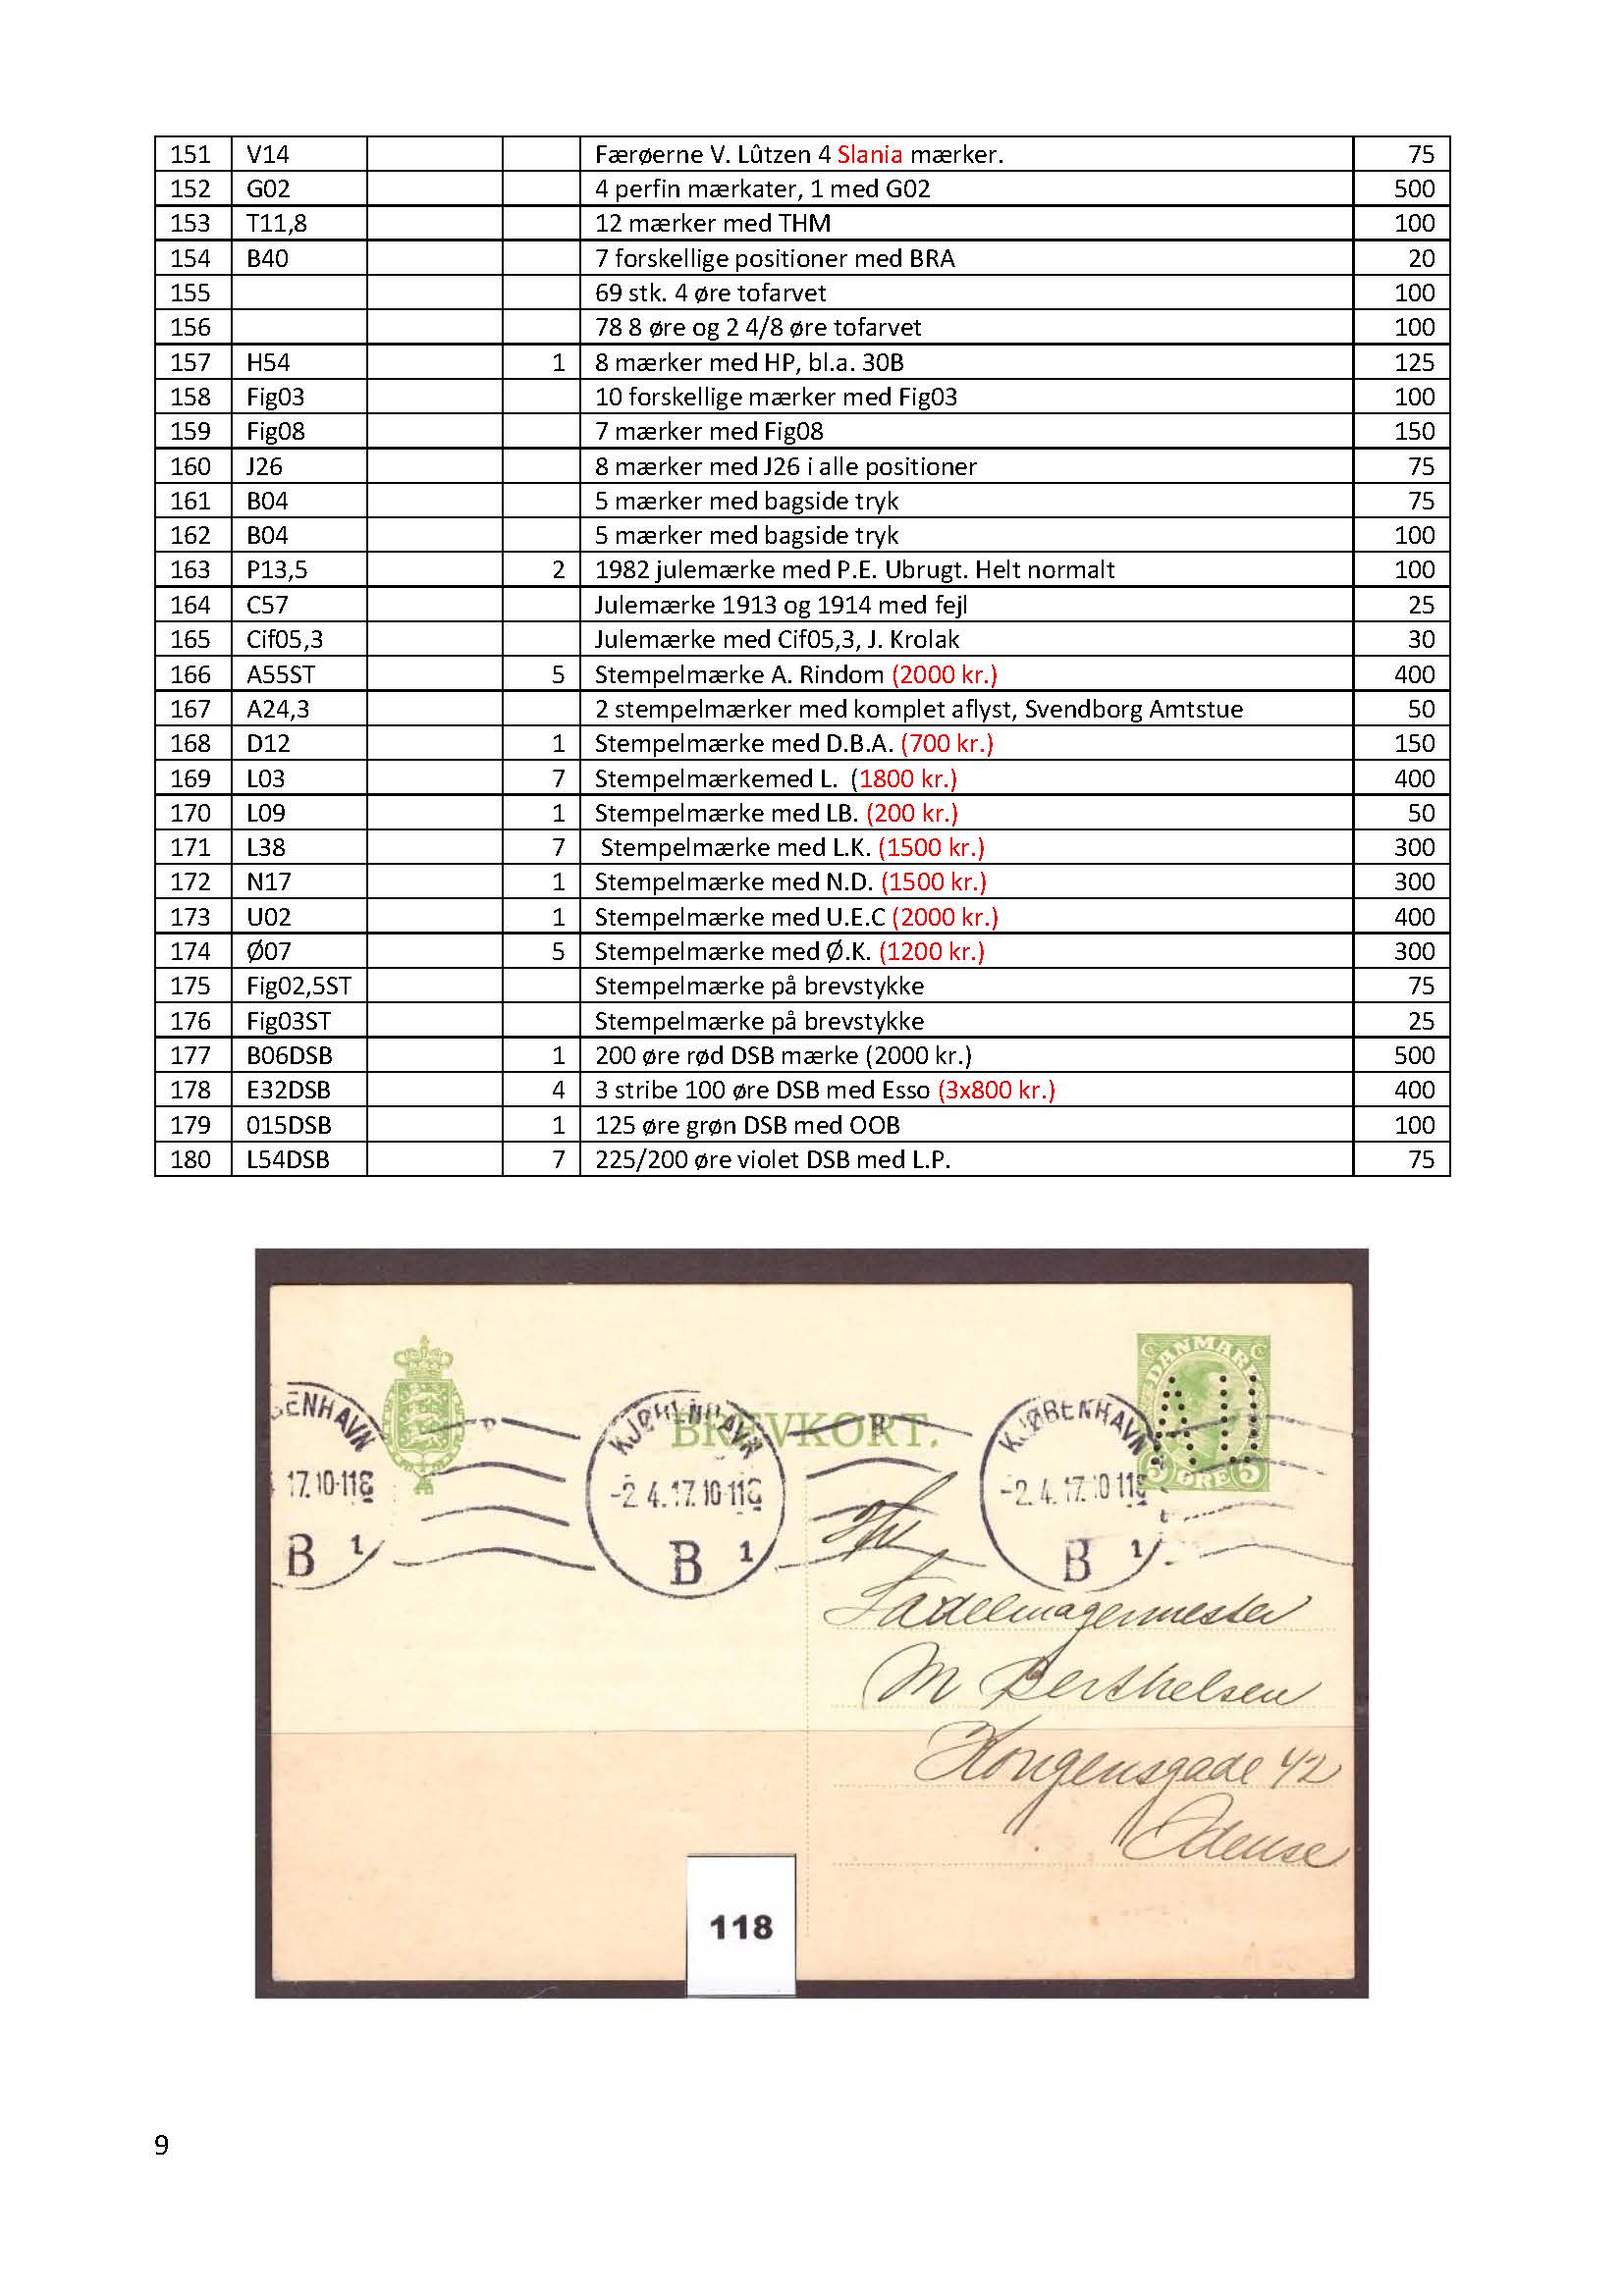 151 V14 Færøerne V. Lûtzen 4 Slania mærker. 75
152 G02 4 perfin mærkater, 1 med G02 500
153 T11,8 12 mærker med THM 100
154 B40 7 forskellige positioner med BRA 20
155 69 stk. 4 øre tofarvet 100
156 78 8 øre og 2 4/8 øre tofarvet 100
157 H54 1 8 mærker med HP, bl.a. 30B 125
158 Fig03 10 forskellige mærker med Fig03 100
159 Fig08 7 mærker med Fig08 150
160 J26 8 mærker med J26 i alle positioner 75
161 B04 5 mærker med bagside tryk 75
162 B04 5 mærker med bagside tryk 100
163 P13,5 2 1982 julemærke med P.E. Ubrugt. Helt normalt 100
164 C57 Julemærke 1913 og 1914 med fejl 25
165 Cif05,3 Julemærke med Cif05,3, J. Krolak 30
166 A55ST 5 Stempelmærke A. Rindom (2000 kr.) 400
167 A24,3 2 stempelmærker med komplet aflyst, Svendborg Amtstue 50
168 D12 1 Stempelmærke med D.B.A. (700 kr.) 150
169 L03 7 Stempelmærkemed L. (1800 kr.) 400
170 L09 1 Stempelmærke med LB. (200 kr.) 50
171 L38 7 Stempelmærke med L.K. (1500 kr.) 300
172 N17 1 Stempelmærke med N.D. (1500 kr.) 300
173 U02 1 Stempelmærke med U.E.C (2000 kr.) 400
174 Ø07 5 Stempelmærke med Ø.K. (1200 kr.) 300
175 Fig02,5ST Stempelmærke på brevstykke 75
176 Fig03ST Stempelmærke på brevstykke 25
177 B06DSB 1 200 øre rød DSB mærke (2000 kr.) 500
178 E32DSB 4 3 stribe 100 øre DSB med Esso (3x800 kr.) 400
179 015DSB 1 125 øre grøn DSB med OOB 100
180 L54DSB 7 225/200 øre violet DSB med L.P. 75
DANMARK
ENHAVN KJØBENHAVN KJØBENHAVN
BREVKORT.
5 ØRE 5
17.10-11 -2.4.17.10-11 -2.4.17.10-11
B 1 B 1 B 1
Hr
Sadelmagermester
M Berthelsen
Kongensgade 42
Odense
118
9